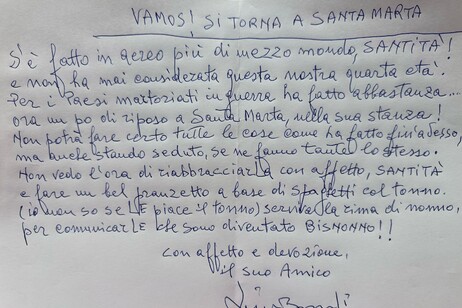 VAMOS! SI TORNA A SANTA MARTA
S'è fatto in aereo più di mezzo mondo, SANTITÀ!
e non ha mai considerata questa nostra quarta età.
Per i Paesi martoriati in guerra ha fatto abbastanza...
ora un po di riposo a Santa Marta, nella sua stanza!
Non potrà fare certo tutte le cose come ha fatto fin'adesso,
ma anche stando seduto, se ne fanno tante lo stesso.
Non vedo l'ora di riabbracciarla con affetto, SANTITÀ
e fare un bel pranzetto a base di spaghetti col tonno.
(io non so se LE piace il tonno) serviva la rima di nonno,
per comunicarLE che sono diventato BISNONNO!!
con affetto e devozione,
il suo Amico